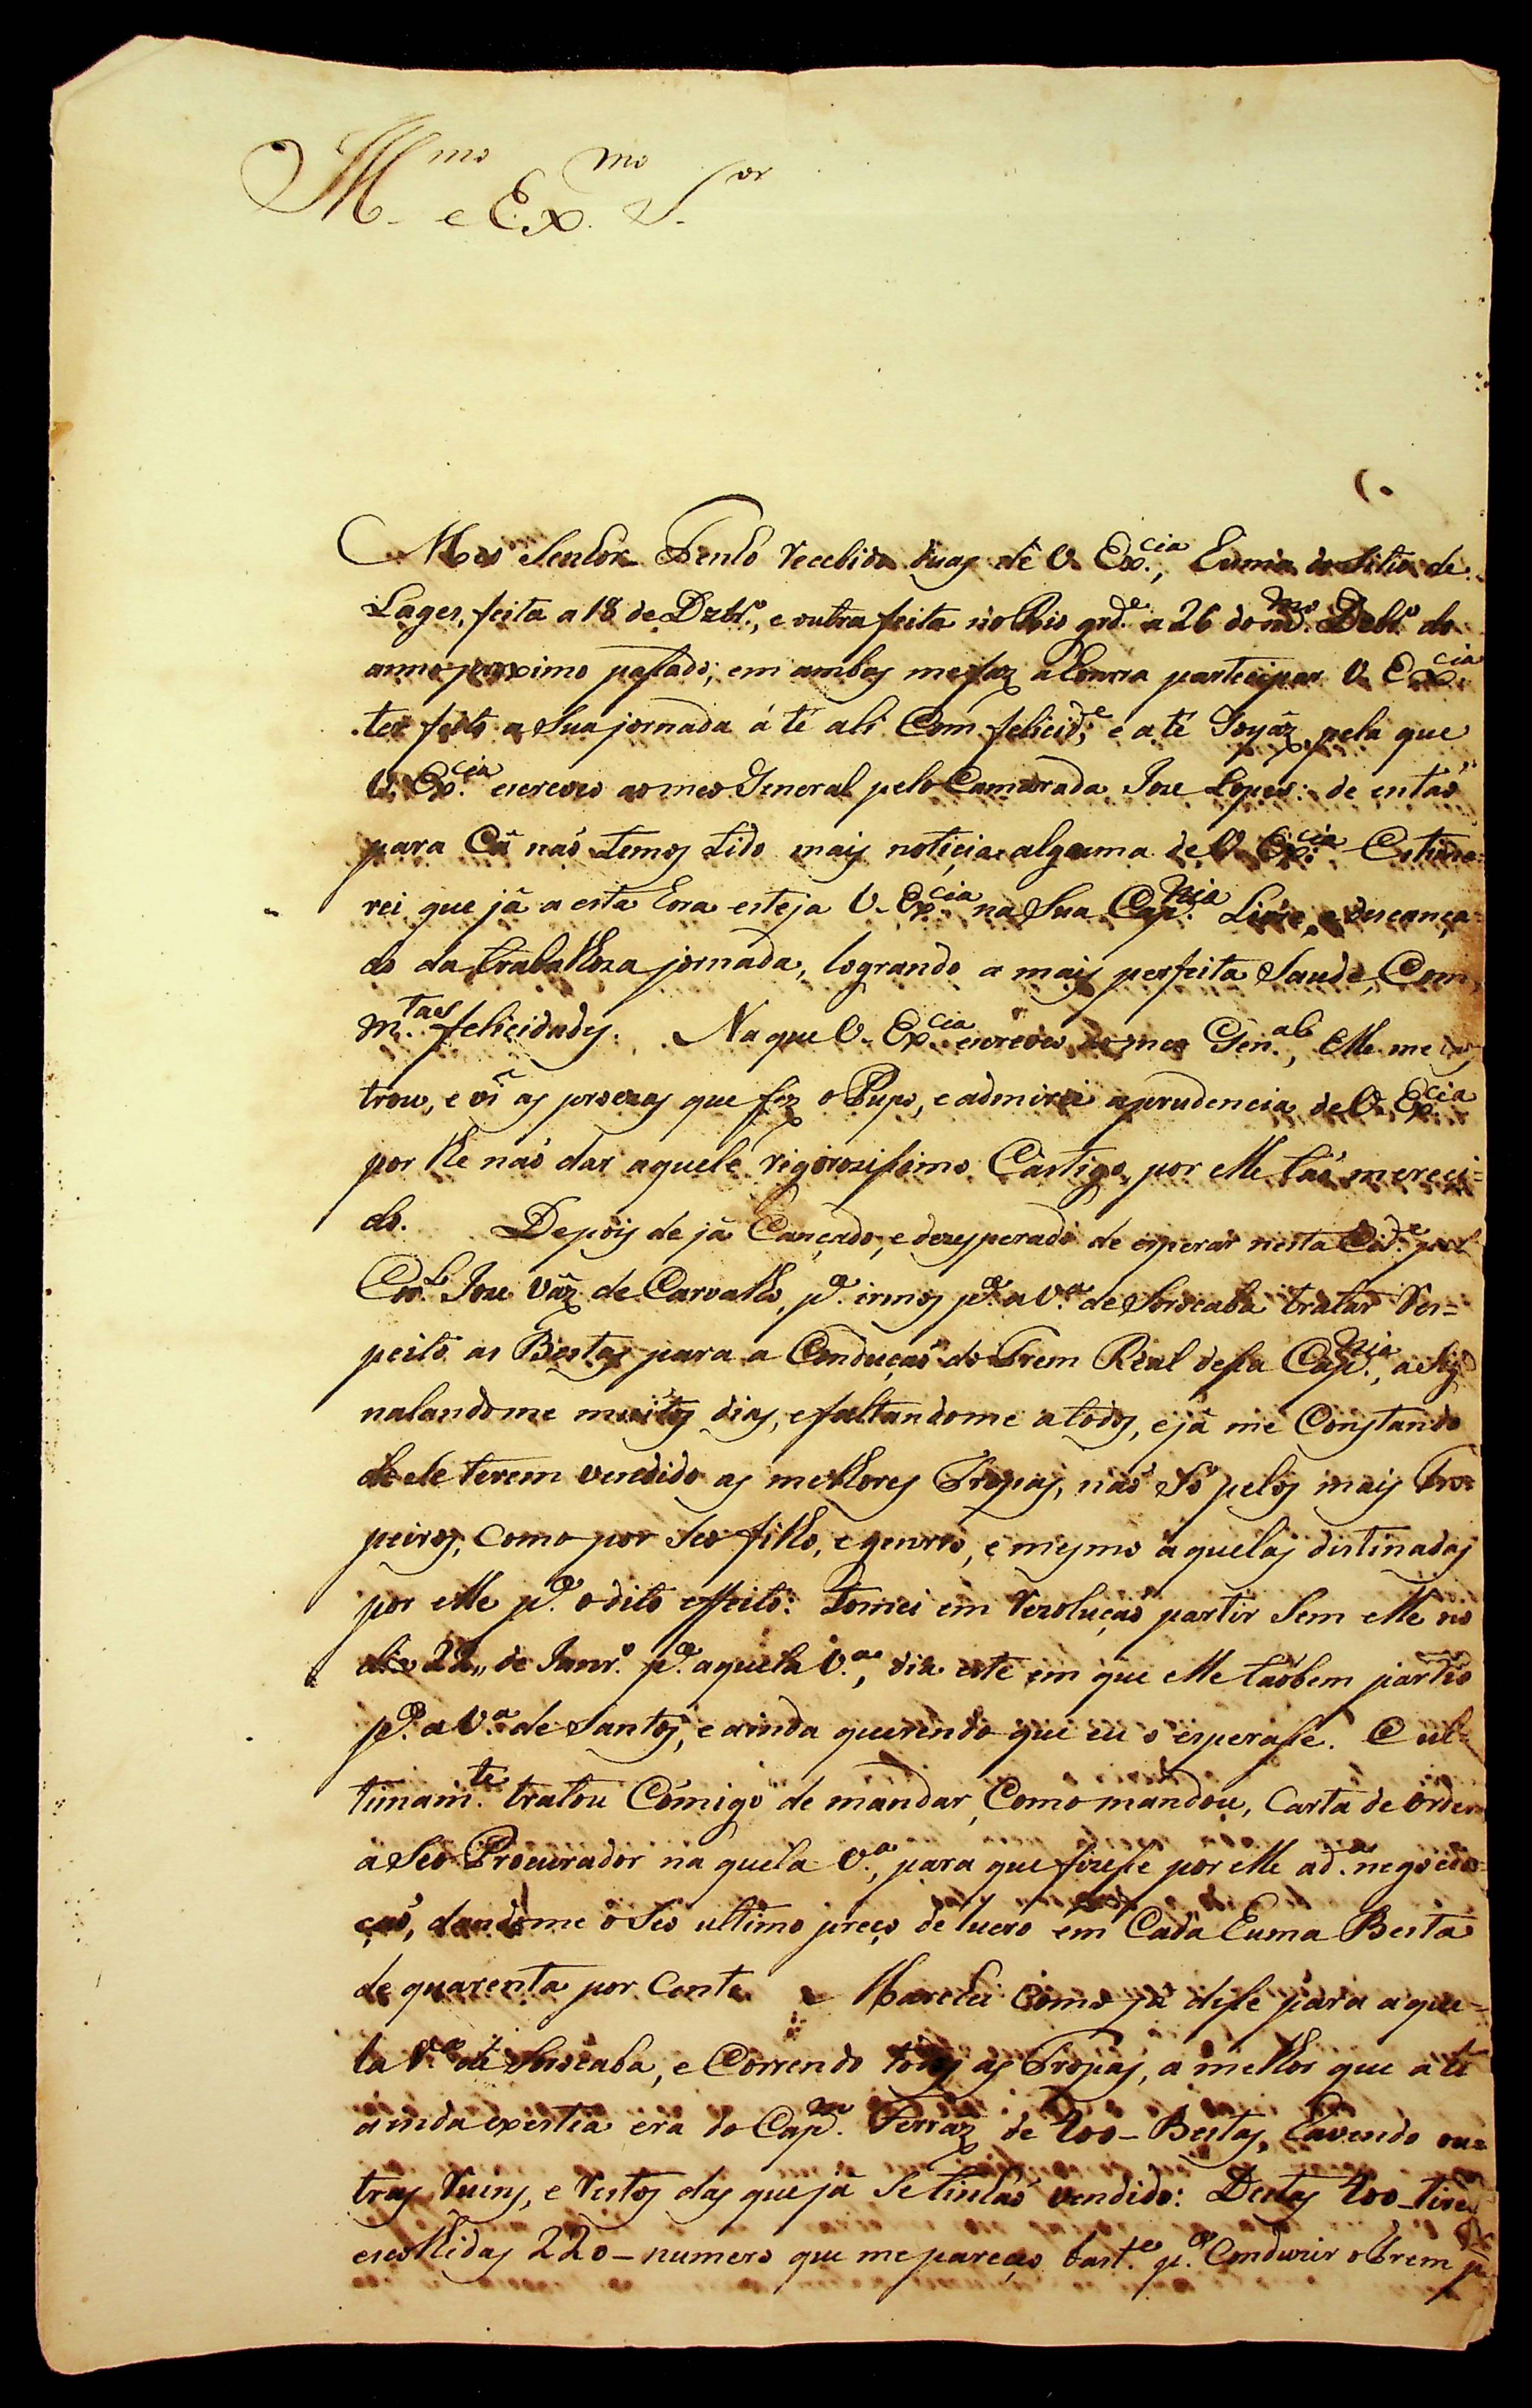 Ill.mo e Ex.mo S.or
Meo Senhor Tenho recebido duas de V. Ex.cia, huma do Sitio de
Lages, feita a 18 de Dzbr.o, e outra feita no Rio grd.e a 26 do m.mo Debr.o do
anno proximo passado; em ambas me faz a honra participar V. Ex.cia
ter feito a Sua jornada á té ali Com felicid.e, e a té Goyáz pela que
V. Ex.cia escreveo ao meo General pelo Camarada Joze Lopes: de entaõ
para Cá naõ temos tido mais noticia alguma de V. Ex.cia Estima=
rei que já a esta hora esteja V. Ex.cia na Sua Cap.nia Livre, e descança=
do da trabalhoza jornada, logrando a mais perfeita Saude, Com
m.tas felicidades. Na que V. Ex.cia escreveo ao meo Gen.al, elle me mos
trou, e vi as proezas que fez o Pupo, e admirei a prudencia de V. Ex.cia
por lhe naõ dar aquele rigorozissimo Castigo, por elle taõ mereci=
do. Depois de já Cançado, e dezesperado de esperar nesta Cid.e pelo
Cor.el Joze Váz de Carvalho, p.a irmos p.a a V.a de Sorocaba tratar res=
peito as Bestas para a Conduçaõ do Trem Real dessa Cap.nia, asig
nalandome muitos dias, e faltandome a todos, e já me Constando
de se terem vendido as melhores Tropas, naõ Só pelos mais Tro=
peiros, como por Seo filho, e genrro, e mesmo aquelas distinadas
por elle p.a o dito effeito: Tomei em rezoluçaõ partir Sem elle no
dia 22,, de Janr.o p.a aquela V.a, dia este em que elle taõbem partio
p.a a V.a de Santos, e ainda querendo que eu o esperasse. E ul=
timam.te tratou Cómigo de mandar, Como mandou, Carta de ordem
a Seo Procurador na quela V.a, para que fizesse por elle a d.a negocia=
çaõ, dandome o Seo ultimo preço de lucro em Cada huma Besta
de quarenta por Cento. Marchei Como já disse para aque=
la V.a de Sorocaba, e Correndo todas as Tropas, a melhor que a té
ainda existia era do Cap.m Ferráz de 400 - Bestas, havendo ou=
tras ruins, e restos das que já Se tinhaõ vendido: Destas 400 - tirei
escolhidas 220 - numero que me pareceo bast.e p.a Conduzir o Trem p.a